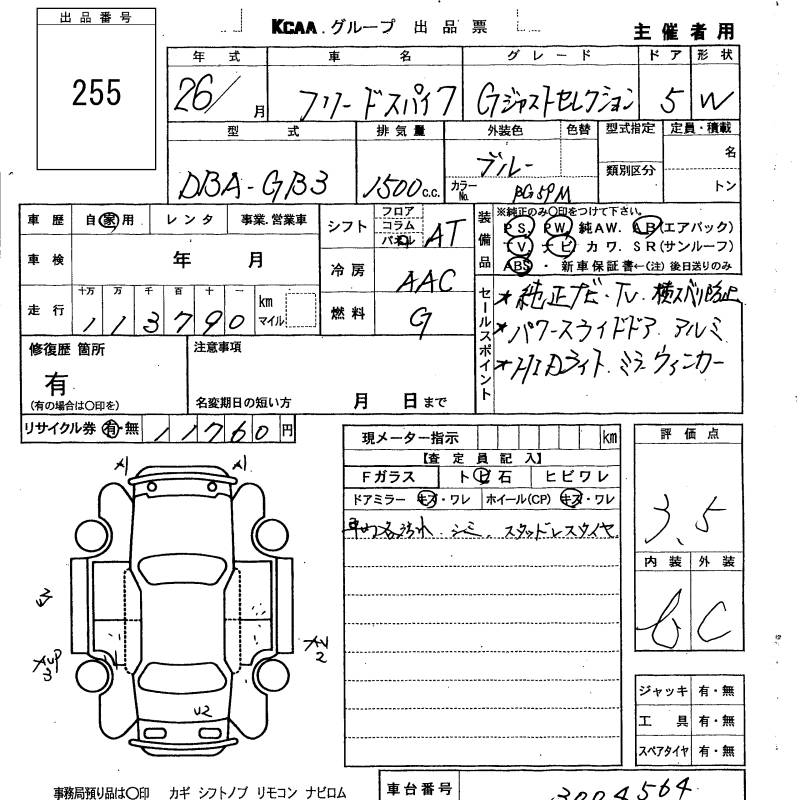 出品番号
255
KCAA.グループ 出品票
主催者用
年式 車名 グレード ドア 形状
26/ 月 フリードスパイク Gジャストセレクション 5 W
型式 排気量 外装色 色替 型式指定 定員・積載
DBA-GB3 1500 c.c. ブルー 類別区分 名
カラーNo. BG59M トン
車歴 自家用 レンタ 事業.営業車
車検 年 月
走行 十万 万 千 百 十 一
113790 km マイル
シフト フロア コラム パネル AT
冷房 AAC
燃料 G
装備品 ※純正のみ○印をつけて下さい。
PS. PW. 純AW. AB(エアバック)
TV. ナビ カワ. SR(サンルーフ)
ABS・ 新車保証書←(注)後日送りのみ
セールスポイント
★純正ナビ・TV. 横スベリ防止
★パワースライドドア アルミ
★HIDライト. ミラーウィンカー
修復歴 箇所
有
(有の場合は○印を)
注意事項
名変期日の短い方 月 日まで
リサイクル券 有・無 11760円
現メーター指示 km
【査定員記入】
Fガラス トビ石 ヒビワレ
ドアミラー キズ・ワレ ホイール(CP) キズ・ワレ
シミ. スタッドレスタイヤ
評価点
3.5
内装 外装
C
A1 A1
U2
ジャッキ 有・無
工具 有・無
スペアタイヤ 有・無
事務局預り品は○印 カギ シフトノブ リモコン ナビロム
車台番号 3004564